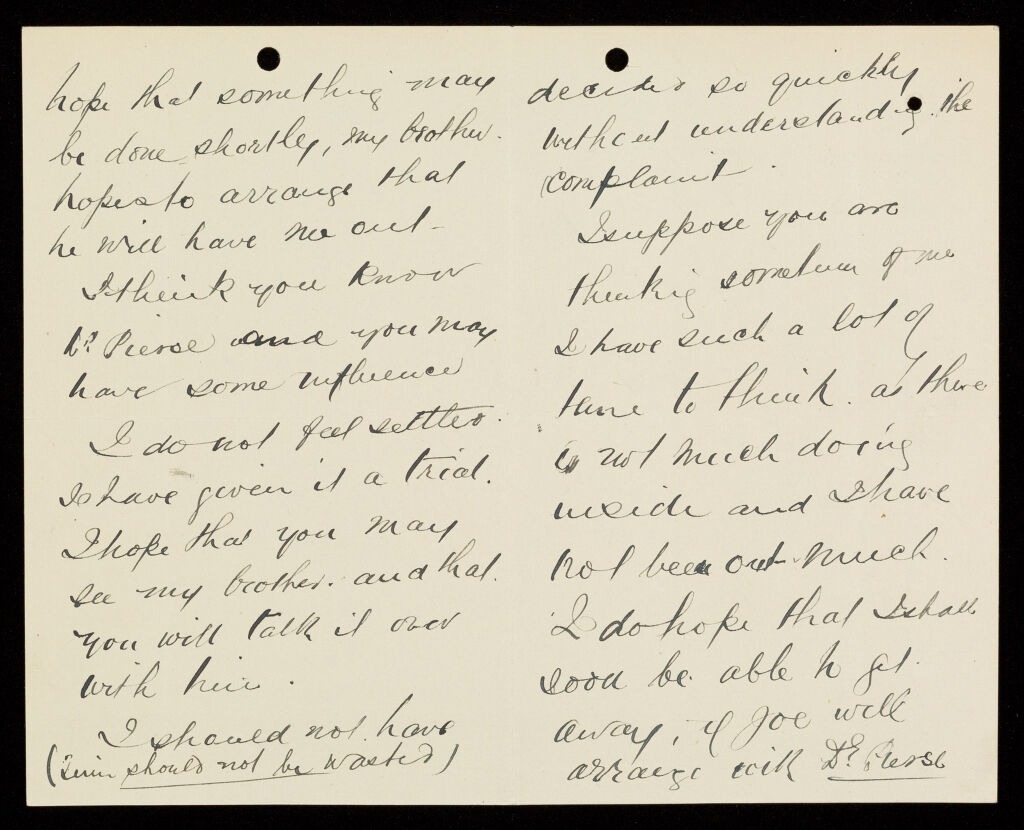 hope that something may
be done shortly, my brother.
hopes to arrange that
he will have me out.
I think you know
Dr Pierse and you may
have some influence
I do not feel settled.
I have given it a trial.
I hope that you may
see my brother. and that.
you will talk it over
with him.
I should not have
(should not be wasted)
decided so quickly
without understanding the
complaint
I suppose you are
thinking sometimes of me
I have such a lot of
time to think. as there
is not much doing
inside and I have
not been out much.
I do hope that I shall
soon be able to get.
away, if Joe will
arrange with Dr. Pierse